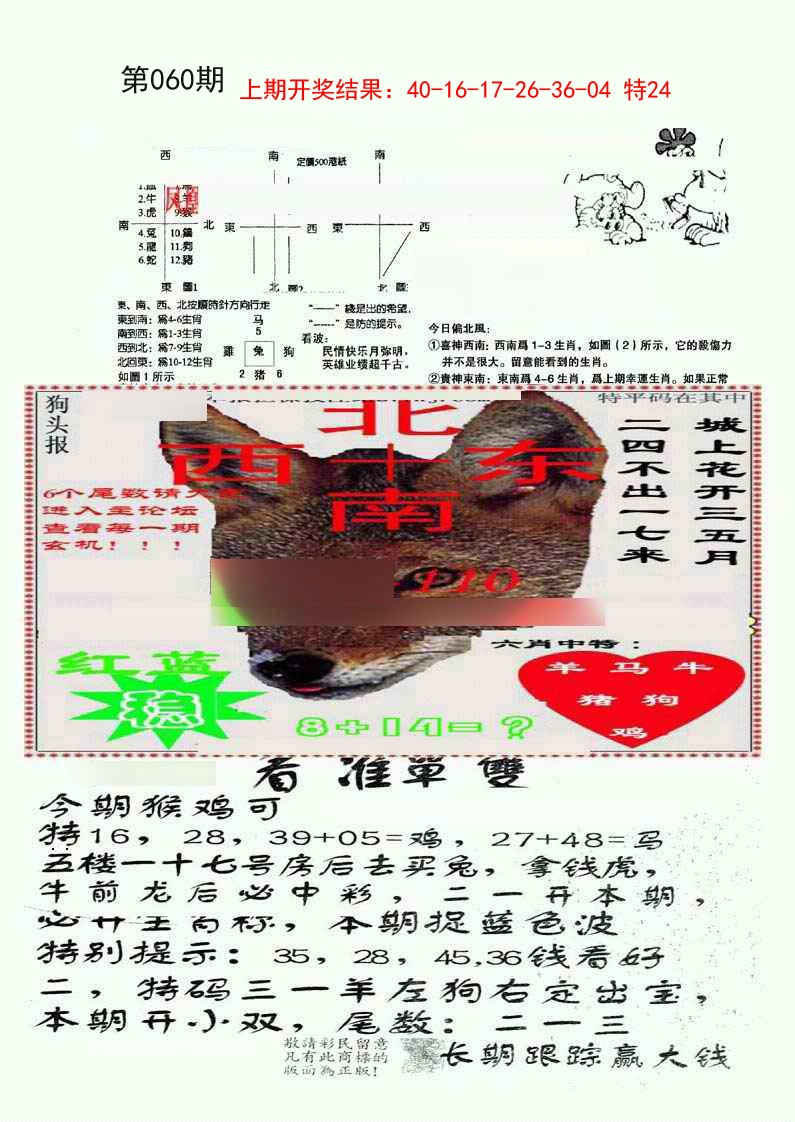 第060期 上期开奖结果：40-16-17-26-36-04 特24
西 南 定價500港紙 南
2.牛
3.虎
南 北 東 西 東 西
4.兔 10.鷄
5.龍 11.狗
6.蛇 12.豬
東 圖1 北 北
東、南、西、北按順時針方向行走
東到南：爲4-6生肖
南到西：爲1-3生肖
西到北：爲7-9生肖
北回東：爲10-12生肖
如圖1所示
马
5
雞 兔 狗
2 猪 6
“——”綫是出的希望，
“-----”是防的提示。
看波：
民情快乐月弥明，
英雄业绩超千古。
今日偏北風：
①喜神西南：西南爲1-3生肖，如圖（2）所示，它的殺傷力
并不是很大。留意能看到的生肖。
②貴神東南：東南爲4-6生肖，爲上期幸運生肖。如果正常
狗头报
特平码在其中
北
西 十 东
南
城上花开三五月
二四不出一七来
6个尾数请
进入主论坛
查看每一期
玄机！！！
110
六肖中特：
羊 马 牛
猪 狗
鸡
红蓝
稳
8+14=？
看准單雙
今期猴鸡可
特16，28，39+05=鸡，27+48=马
五楼一十七号房后去买兔，拿钱虎，
牛前龙后必中彩，二一开本期，
本期捉蓝色波
特别提示：35，28，45,36钱看好
二，特码三一羊左狗右定出宝，
本期开小双，尾数：二一三
敬請彩民留意
凡有此商標的
版面為正版！
长期跟踪赢大钱